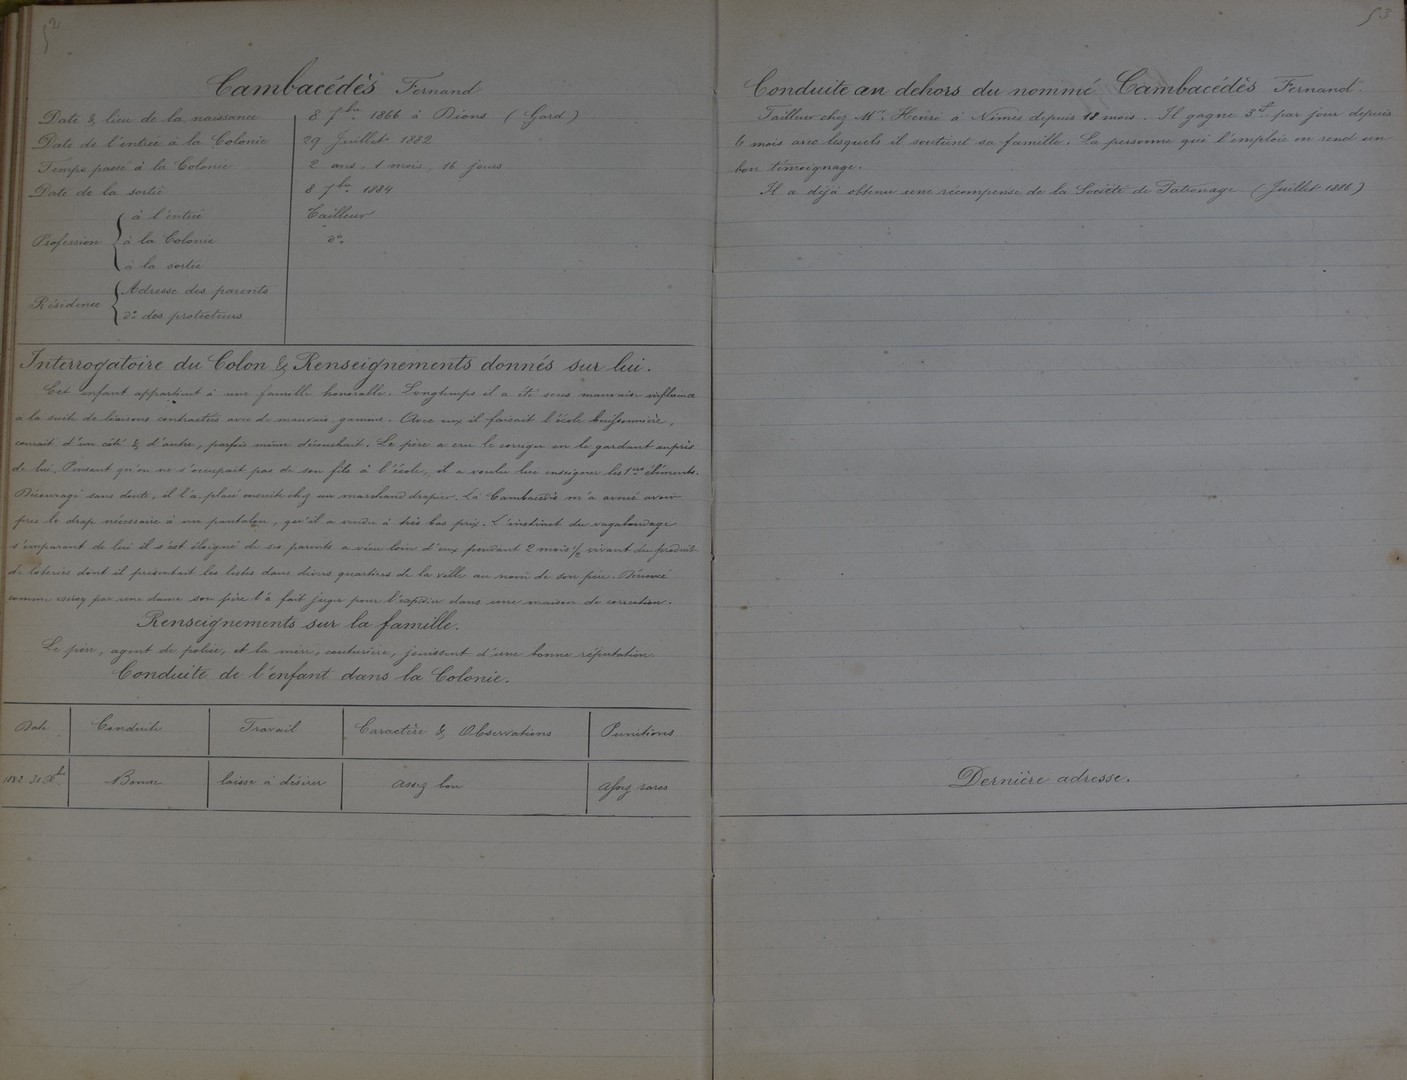 52
Cambacédès Fernand
Date & lieu de la naissance 8 7bre 1866 à Dions (Gard)
Date de l'entrée à la Colonie 29 Juillet 1882
Temps passé à la Colonie 2 ans, 1 mois, 16 jours
Date de la sortie 8 7bre 1884
Profession { à l'entrée Tailleur
à la Colonie do
à la sortie
Résidence { Adresse des parents
do des protecteurs
Interrogatoire du Colon & Renseignements donnés sur lui.
Cet enfant appartient à une famille honorable. Longtemps il a été sous mauvaise influence
à la suite de liaisons contractées avec de mauvais gamins. Avec eux il faisait l'école buissonnière,
courait d'un côté & d'autre, parfois même découchait. Le père a cru le corriger en le gardant auprès
de lui. Pensant qu'on ne s'occupait pas de son fils à l'école, il a voulu lui enseigner les 1ers éléments.
Découragé sans doute, il l'a placé ensuite chez un marchand drapier. Là Cambacédès m'a avoué avoir
pris le drap nécessaire à un pantalon, qu'il a vendu à très bas prix. L'instinct du vagabondage
s'emparant de lui il s'est éloigné de ses parents a vécu loin d'eux pendant 2 mois 1/2 vivant du produit
de loteries dont il présentait les listes dans divers quartiers de la ville au nom de son père. Dénoncé
comme escroc par une dame son père l'a fait juger pour l'expédier dans une maison de correction.
Renseignements sur la famille.
Le père, agent de police, et la mère, couturière, jouissent d'une bonne réputation.
Conduite de l'enfant dans la Colonie.
Date Conduite Travail Caractère & Observations Punitions
1882 31 Xbre Bonne laisse à désirer assez bon assez rares
53
Conduite au dehors du nommé Cambacédès Fernand.
Tailleur chez Mr. Henri à Nîmes depuis 18 mois. Il gagne 3f par jour depuis
6 mois avec lesquels il soutient sa famille. La personne qui l'emploie en rend un
bon témoignage.
Il a déjà obtenu une récompense de la Société de Patronage (Juillet 1886)
Dernière adresse.